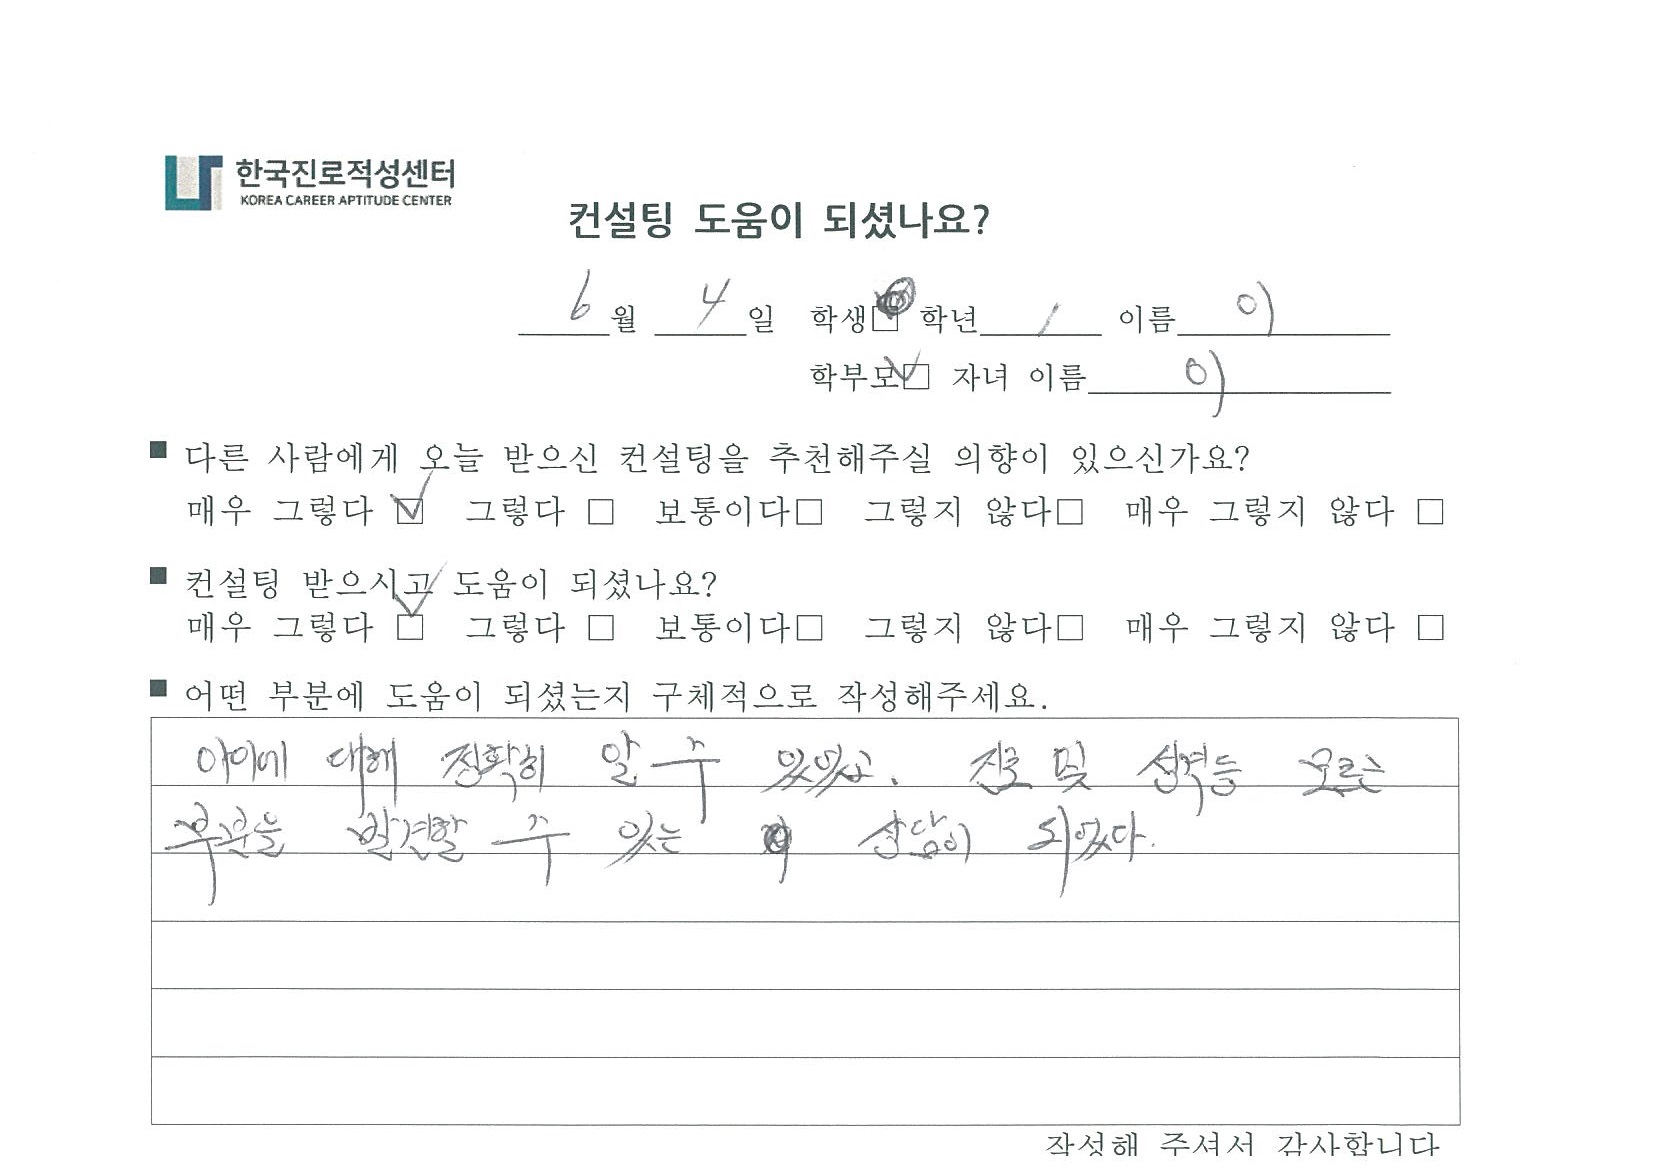 한국진로적성센터
KOREA CAREER APTITUDE CENTER
컨설팅 도움이 되셨나요?
6월 4일 학생□ 학년 1 이름 이
학부모☑ 자녀 이름 이
■ 다른 사람에게 오늘 받으신 컨설팅을 추천해주실 의향이 있으신가요?
매우 그렇다 ☑ 그렇다 □ 보통이다□ 그렇지 않다□ 매우 그렇지 않다 □
■ 컨설팅 받으시고 도움이 되셨나요?
매우 그렇다 ☑ 그렇다 □ 보통이다□ 그렇지 않다□ 매우 그렇지 않다 □
■ 어떤 부분에 도움이 되셨는지 구체적으로 작성해주세요.
아이에 대해 정확히 알 수 있었고. 진로 및 성격등 모르는
부분을 발견할 수 있는 상담이 되었다.
작성해 주셔서 감사합니다